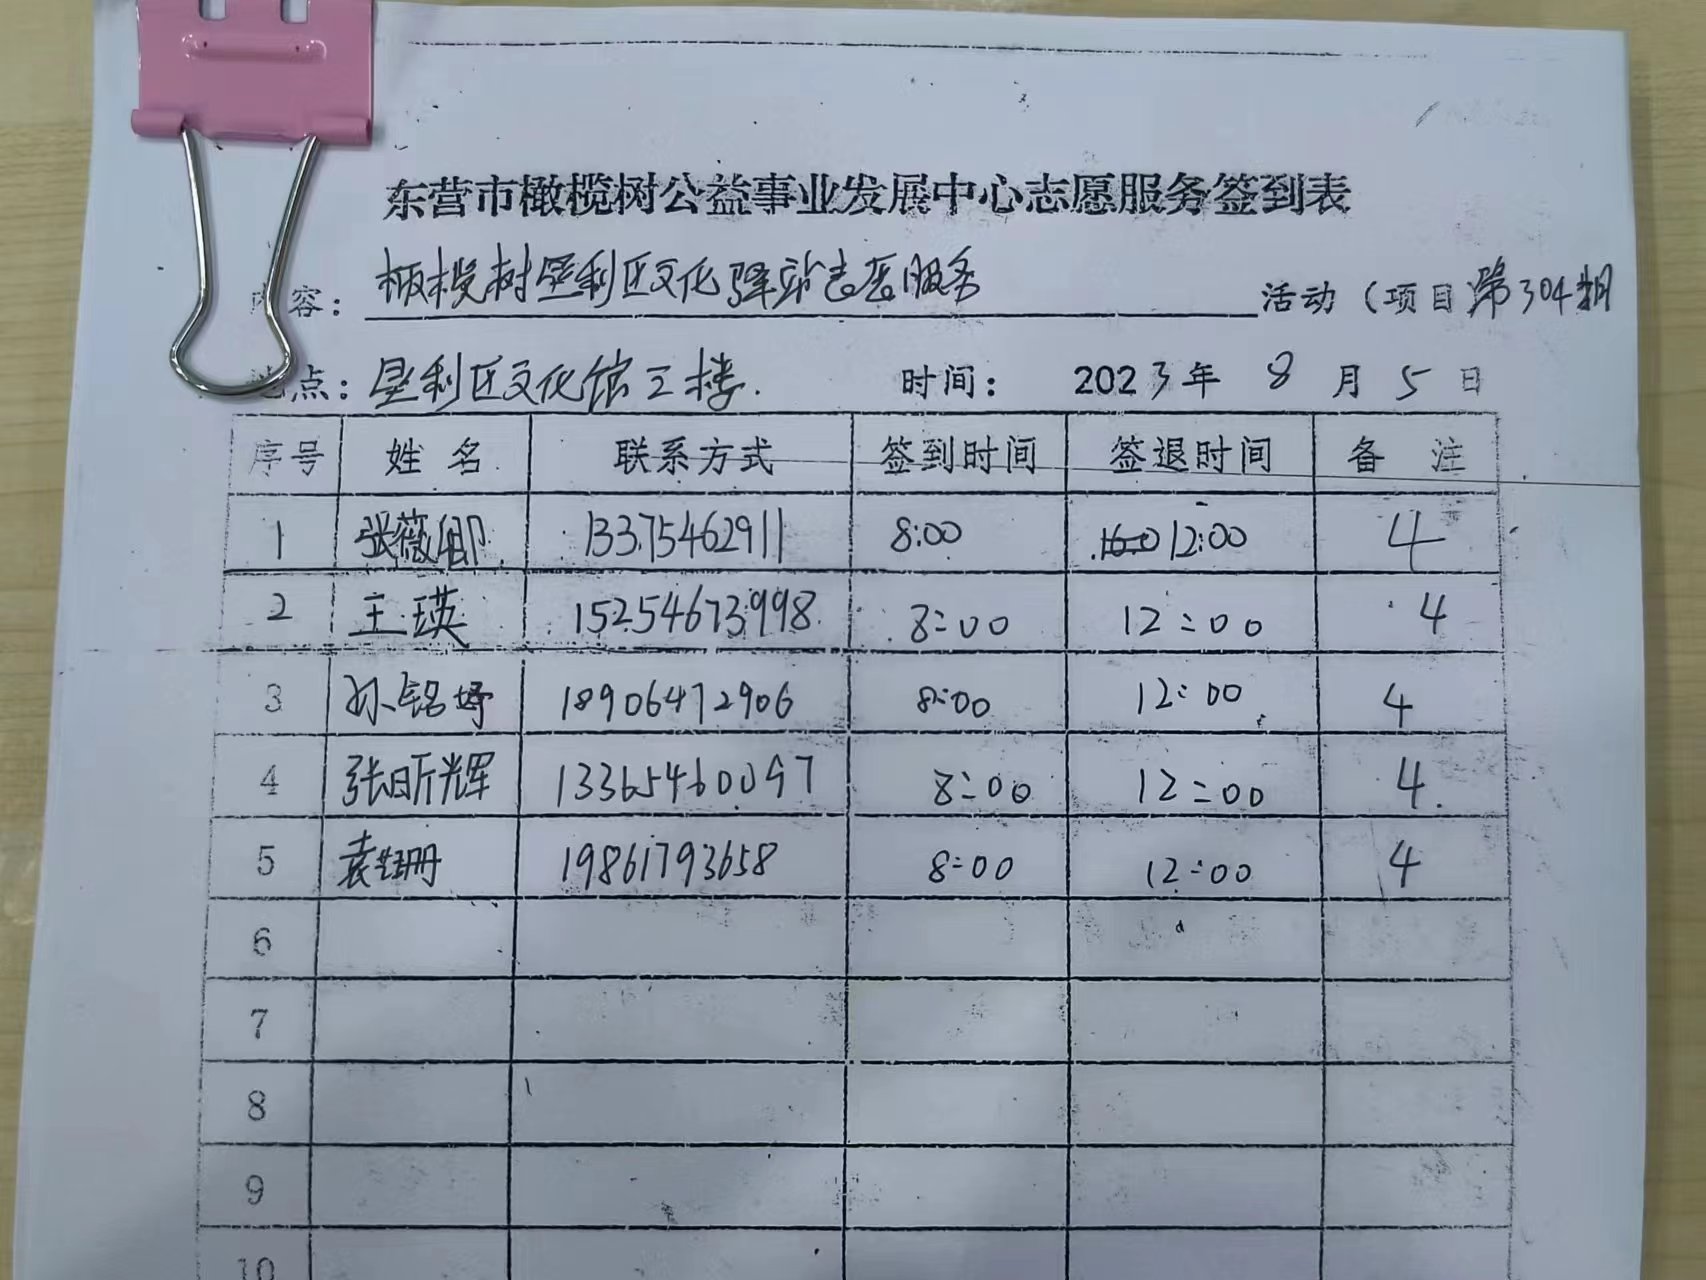 东营市橄榄树公益事业发展中心志愿服务签到表
内容: 橄榄树垦利区文化驿站志愿服务 活动（项目 第304期
地点: 垦利区文化馆三楼. 时间: 2023年 8 月 5 日
序号 姓名 联系方式 签到时间 签退时间 备 注
1 张薇卿 13375462911 8:00 12:00 4
2 王瑛 15254673998 8:00 12:00 4
3 孙铭妤 18906472906 8:00 12:00 4
4 张昕辉 13365460097 8:00 12:00 4
5 袁 珊 19861793658 8:00 12:00 4
6
7
8
9
10